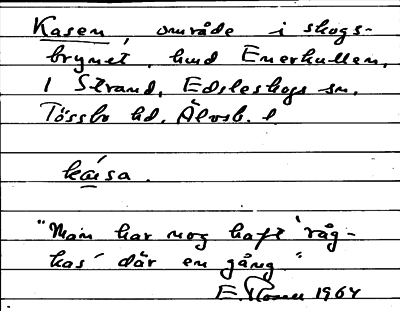 Kasen, område i skogs-
brynet, hmd Enerkullen,
1 Strand, Edsleskogs sn,
Tössbo hd, Älvsb. l.
kàsa.
"Man har nog haft 'råg-
kas' där en gång."
E. 1964